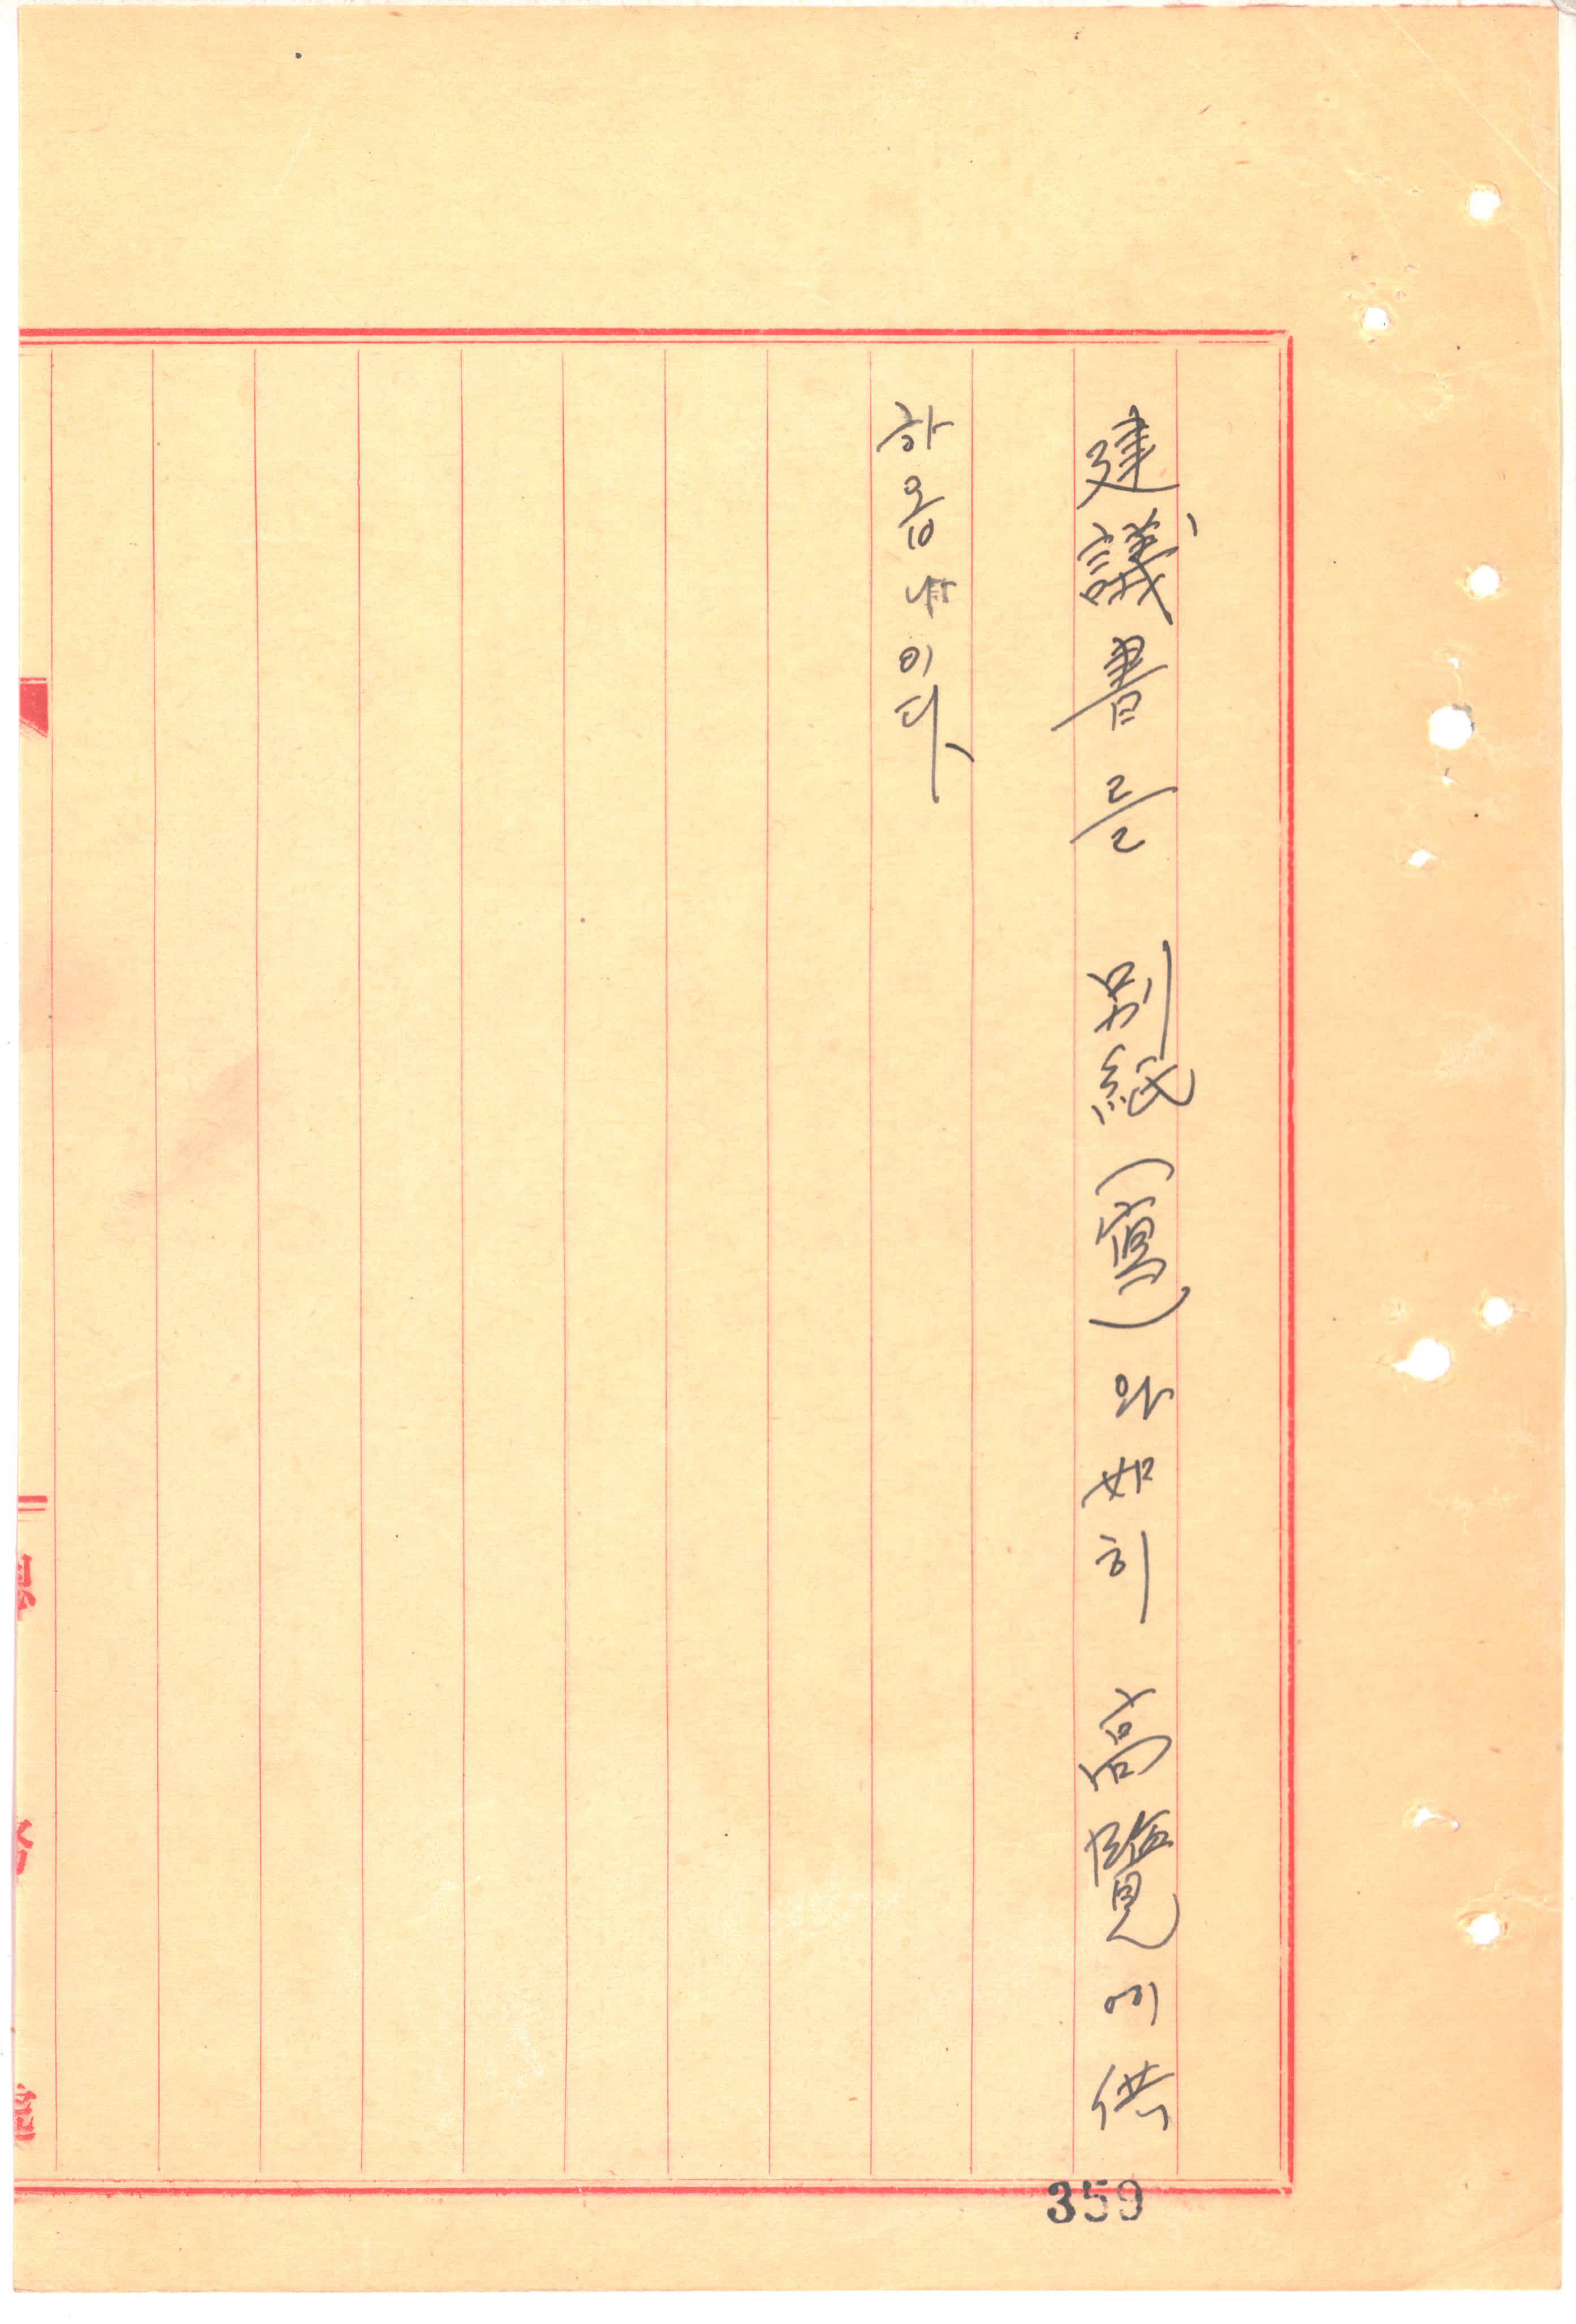 建議書를 別紙(寫)와 如히 高覽에 供
하옵나이다
359